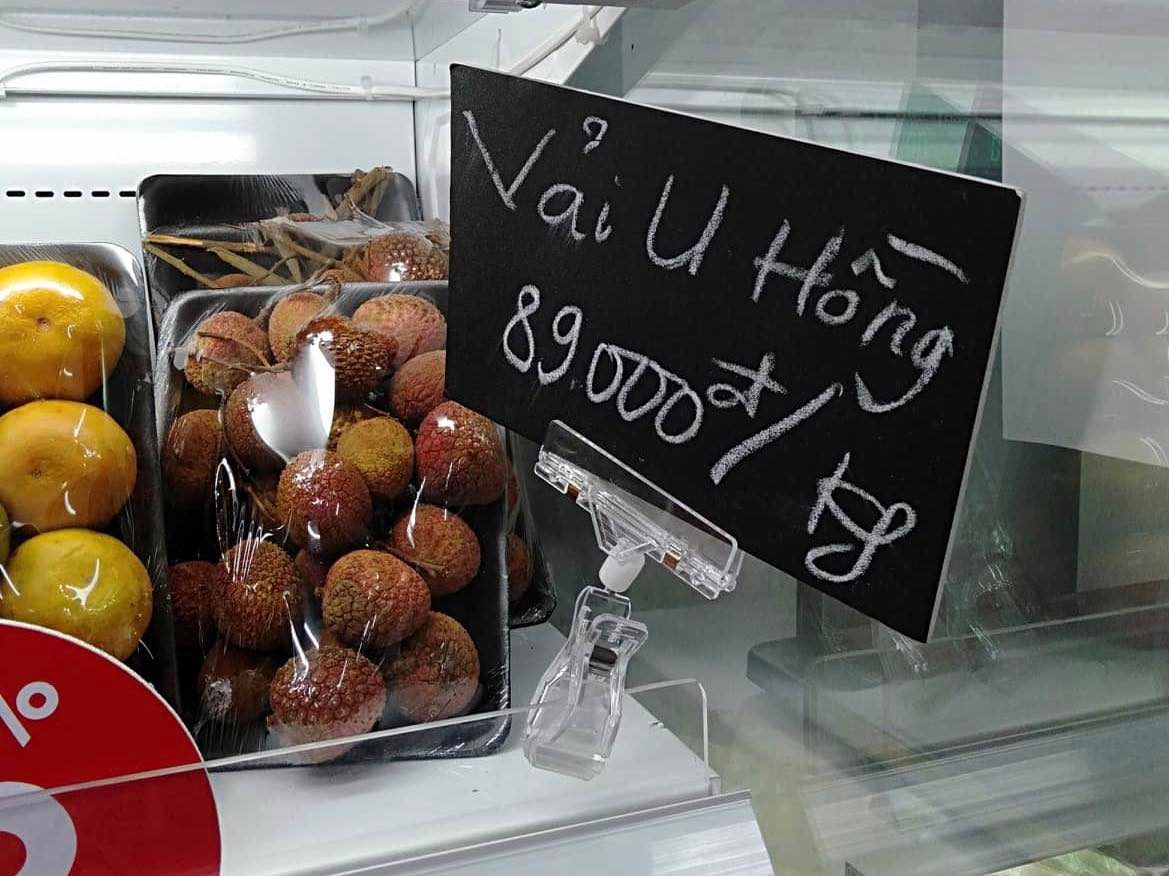 Vải U Hồng
89.000đ/kg
%